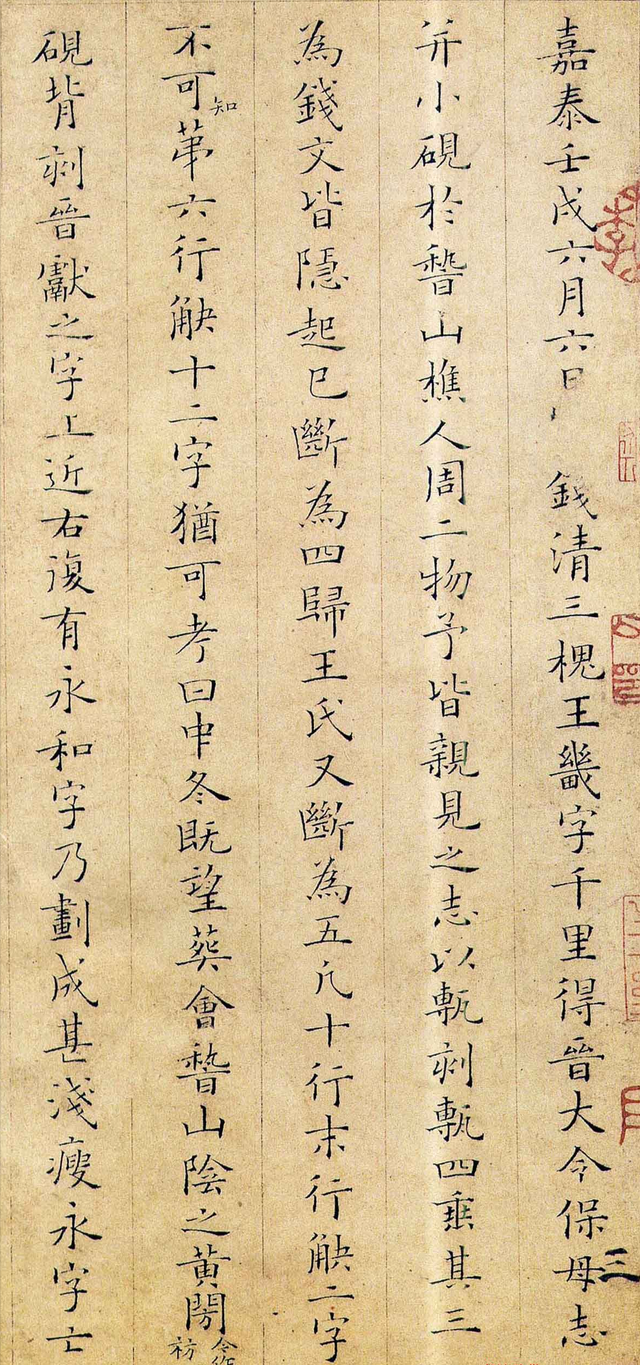 嘉泰壬戌六月六日錢清三槐王畿字千里得晉大令保母志
并小硯於稽山樵人周二物予皆親見之志以甎刻甎四垂其三
為錢文皆隱起已斷為四歸王氏又斷為五凡十行末行缺二字
不可知第六行缺十二字猶可考曰中冬既望葬會稽山陰之黃閍
硯背刻晉獻之字上近右復有永和字乃劃成甚淺瘦永字亡